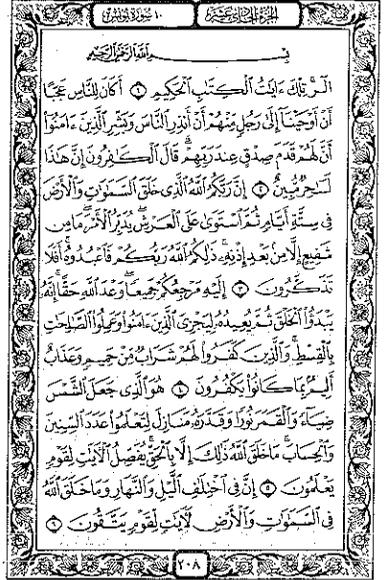 الجزء الحادي عشر ١٠ سورة يونس
بسم الله الرحمن الرحيم
الٓر تِلْكَ ءَايَٰتُ ٱلْكِتَٰبِ ٱلْحَكِيمِ ١ أَكَانَ لِلنَّاسِ عَجَبًا
أَنْ أَوْحَيْنَآ إِلَىٰ رَجُلٍ مِّنْهُمْ أَنْ أَنذِرِ ٱلنَّاسَ وَبَشِّرِ ٱلَّذِينَ ءَامَنُوٓا۟
أَنَّ لَهُمْ قَدَمَ صِدْقٍ عِندَ رَبِّهِمْ ۗ قَالَ ٱلْكَٰفِرُونَ إِنَّ هَٰذَا
لَسَٰحِرٌ مُّبِينٌ ٢ إِنَّ رَبَّكُمُ ٱللَّهُ ٱلَّذِى خَلَقَ ٱلسَّمَٰوَٰتِ وَٱلْأَرْضَ
فِى سِتَّةِ أَيَّامٍ ثُمَّ ٱسْتَوَىٰ عَلَى ٱلْعَرْشِ ۖ يُدَبِّرُ ٱلْأَمْرَ ۖ مَا مِن
شَفِيعٍ إِلَّا مِنۢ بَعْدِ إِذْنِهِۦ ۚ ذَٰلِكُمُ ٱللَّهُ رَبُّكُمْ فَٱعْبُدُوهُ ۚ أَفَلَا
تَذَكَّرُونَ ٣ إِلَيْهِ مَرْجِعُكُمْ جَمِيعًا ۖ وَعْدَ ٱللَّهِ حَقًّا ۚ إِنَّهُۥ
يَبْدَؤُا۟ ٱلْخَلْقَ ثُمَّ يُعِيدُهُۥ لِيَجْزِىَ ٱلَّذِينَ ءَامَنُوا۟ وَعَمِلُوا۟ ٱلصَّٰلِحَٰتِ
بِٱلْقِسْطِ ۚ وَٱلَّذِينَ كَفَرُوا۟ لَهُمْ شَرَابٌ مِّنْ حَمِيمٍ وَعَذَابٌ
أَلِيمٌۢ بِمَا كَانُوا۟ يَكْفُرُونَ ٤ هُوَ ٱلَّذِى جَعَلَ ٱلشَّمْسَ
ضِيَآءً وَٱلْقَمَرَ نُورًا وَقَدَّرَهُۥ مَنَازِلَ لِتَعْلَمُوا۟ عَدَدَ ٱلسِّنِينَ
وَٱلْحِسَابَ ۚ مَا خَلَقَ ٱللَّهُ ذَٰلِكَ إِلَّا بِٱلْحَقِّ ۚ يُفَصِّلُ ٱلْءَايَٰتِ لِقَوْمٍ
يَعْلَمُونَ ٥ إِنَّ فِى ٱخْتِلَٰفِ ٱلَّيْلِ وَٱلنَّهَارِ وَمَا خَلَقَ ٱللَّهُ
فِى ٱلسَّمَٰوَٰتِ وَٱلْأَرْضِ لَءَايَٰتٍ لِّقَوْمٍ يَتَّقُونَ ٦
٢٠٨